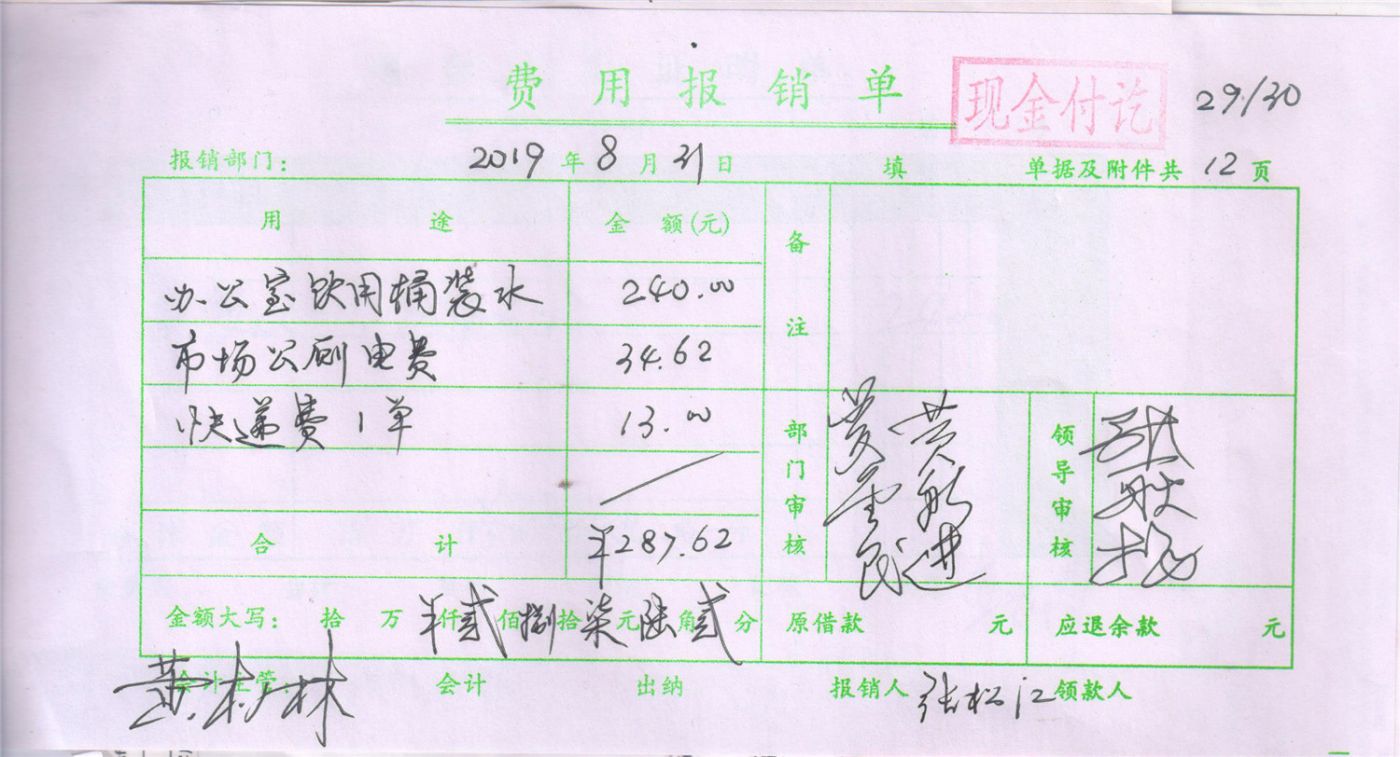 费用报销单
现金付讫
29/30
报销部门： 2019 年 8 月 31 日 填 单据及附件共 12 页
用途 金额(元) 备注
办公室饮用桶装水 240.00
市场公厕电费 34.62
快递费1单 13.00
部门审核 黄 领导审核
合计 ¥287.62
金额大写： 拾 万 ¥ 仟 贰 佰 捌 拾 柒 元 陆 角 贰 分 原借款 元 应退余款 元
会计主管： 黄树林 会计 出纳 报销人 张松江 领款人